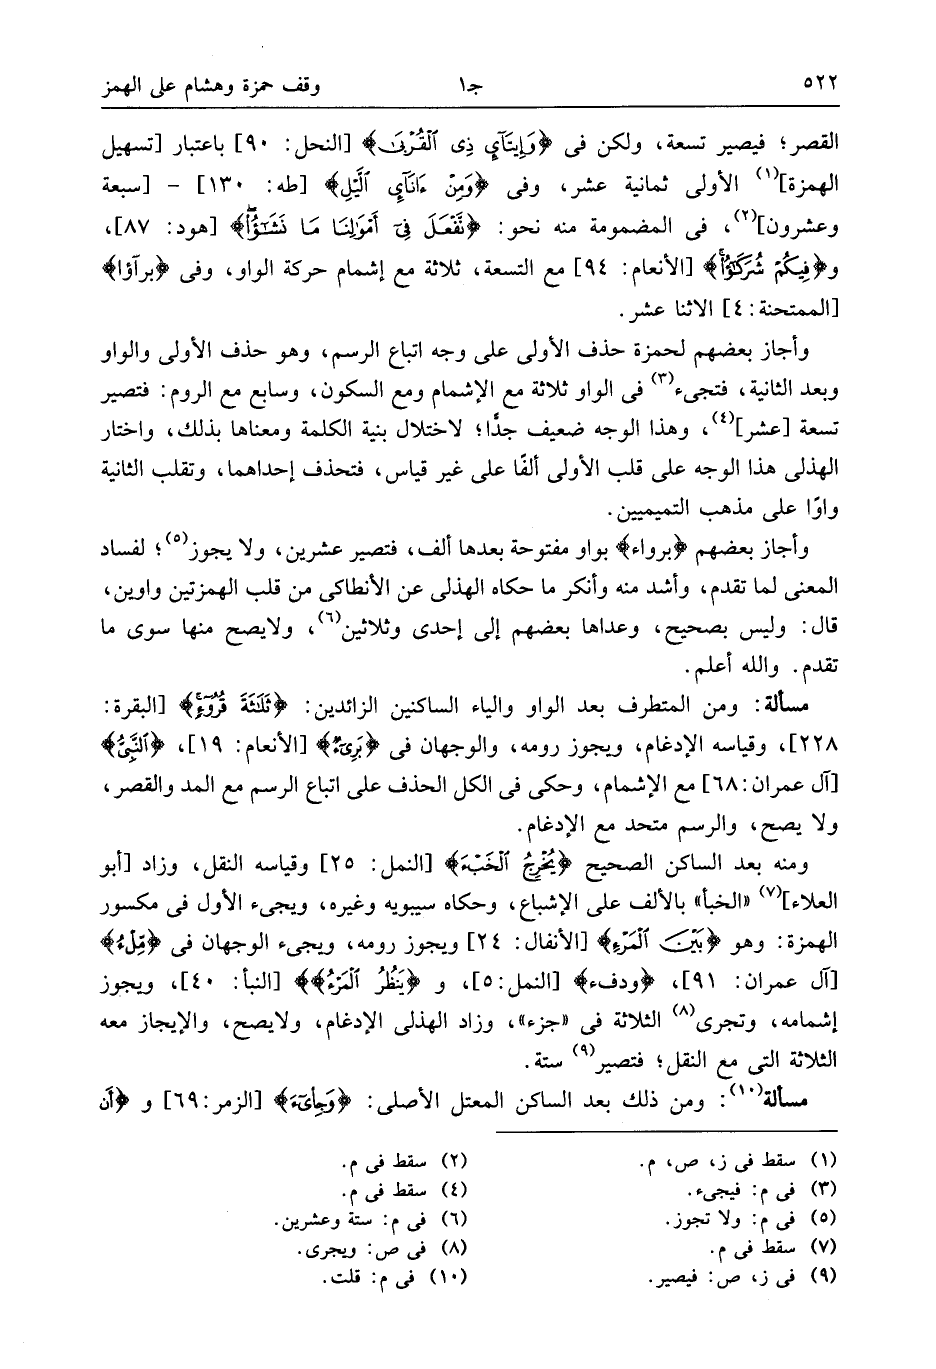 ٥٢٢ جـ١ وقف حمزة وهشام على الهمز
القصر؛ فيصير تسعة، ولكن فى ﴿وَإِيتَآيِٕ ذِى ٱلْقُرْبَىٰ﴾ [النحل: ٩٠] باعتبار [تسهيل
الهمزة](١) الأولى ثمانية عشر، وفى ﴿وَمِنْ ءَانَآيِٕ ٱلَّيْلِ﴾ [طه: ١٣٠] - [سبعة
وعشرون](٢)، فى المضمومة منه نحو: ﴿نَّفْعَلَ فِىٓ أَمْوَٰلِنَا مَا نَشَـٰٓؤُا۟﴾ [هود: ٨٧]،
و﴿فِيكُمْ شُرَكَـٰٓؤُا۟﴾ [الأنعام: ٩٤] مع التسعة، ثلاثة مع إشمام حركة الواو، وفى ﴿برآؤا﴾
[الممتحنة:٤] الاثنا عشر.
وأجاز بعضهم لحمزة حذف الأولى على وجه اتباع الرسم، وهو حذف الأولى والواو
وبعد الثانية، فتجىء(٣) فى الواو ثلاثة مع الإشمام ومع السكون، وسابع مع الروم: فتصير
تسعة [عشر](٤)، وهذا الوجه ضعيف جدًّا؛ لاختلال بنية الكلمة ومعناها بذلك، واختار
الهذلى هذا الوجه على قلب الأولى ألفًا على غير قياس، فتحذف إحداهما، وتقلب الثانية
واوًا على مذهب التميميين.
وأجاز بعضهم ﴿برواء﴾ بواو مفتوحة بعدها ألف، فتصير عشرين، ولا يجوز(٥)؛ لفساد
المعنى لما تقدم، وأشد منه وأنكر ما حكاه الهذلى عن الأنطاكى من قلب الهمزتين واوين،
قال: وليس بصحيح، وعداها بعضهم إلى إحدى وثلاثين(٦)، ولايصح منها سوى ما
تقدم. والله أعلم.
مسألة: ومن المتطرف بعد الواو والياء الساكنين الزائدين: ﴿ثَلَـٰثَةَ قُرُوٓءٍ﴾ [البقرة:
٢٢٨]، وقياسه الإدغام، ويجوز رومه، والوجهان فى ﴿بَرِىٓءٌ﴾ [الأنعام: ١٩]، ﴿ٱلنَّبِىُّ﴾
[آل عمران:٦٨] مع الإشمام، وحكى فى الكل الحذف على اتباع الرسم مع المد والقصر،
ولا يصح، والرسم متحد مع الإدغام.
ومنه بعد الساكن الصحيح ﴿يُخْرِجُ ٱلْخَبْءَ﴾ [النمل: ٢٥] وقياسه النقل، وزاد [أبو
العلاء](٧) «الخبأ» بالألف على الإشباع، وحكاه سيبويه وغيره، ويجىء الأول فى مكسور
الهمزة: وهو ﴿بَيْنَ ٱلْمَرْءِ﴾ [الأنفال: ٢٤] ويجوز رومه، ويجىء الوجهان فى ﴿مِّلْءُ﴾
[آل عمران: ٩١]، ﴿ودفء﴾ [النمل:٥]، و ﴿يَنظُرُ ٱلْمَرْءُ﴾﴾ [النبأ: ٤٠]، ويجوز
إشمامه، وتجرى(٨) الثلاثة فى «جزء»، وزاد الهذلى الإدغام، ولايصح، والإيجاز معه
الثلاثة التى مع النقل؛ فتصير(٩) ستة.
مسألة(١٠): ومن ذلك بعد الساكن المعتل الأصلى: ﴿وَجِا۟ىٓءَ﴾ [الزمر:٦٩] و ﴿أَن
(١) سقط فى ز، ص، م. (٢) سقط فى م.
(٣) فى م: فيجىء. (٤) سقط فى م.
(٥) فى م: ولا تجوز. (٦) فى م: ستة وعشرين.
(٧) سقط فى م. (٨) فى ص: ويجرى.
(٩) فى ز، ص: فيصير. (١٠) فى م: قلت.